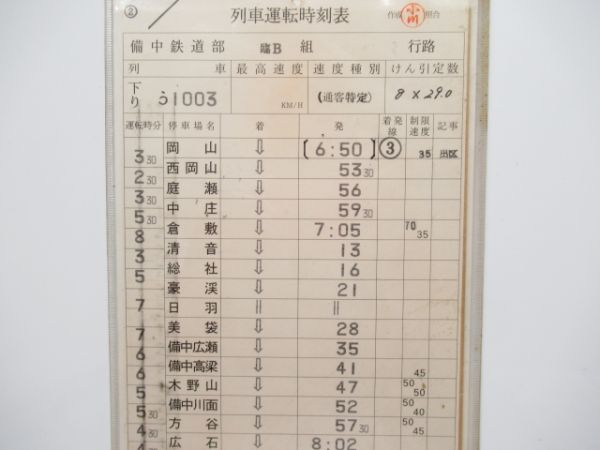 ② 列車運転時刻表 作成 小川 照合
備中鉄道部 臨B 組 行路
列 車 最高速度 速度種別 けん引定数
下り う1003 KM/H (通客特定) 8×29.0
運転時分 停車場名 着 発 着発線 制限速度 記事
岡山 ⇩ 〔6:50〕 ③ 35 出区
3 30 西岡山 ⇩ 53 30
2 30 庭瀬 ⇩ 56
3 30 中庄 ⇩ 59 30
5 30 倉敷 ⇩ 7:05 70 35
8 清音 ⇩ 13
3 総社 ⇩ 16
5 豪渓 ⇩ 21
日羽 || ||
7 美袋 ⇩ 28
7 備中広瀬 ⇩ 35
6 備中高梁 ⇩ 41 45
6 木野山 ⇩ 47 50 50
5 備中川面 ⇩ 52 50 40
5 30 方谷 ⇩ 57 30 50 45
4 30 広石 ⇩ 8:02